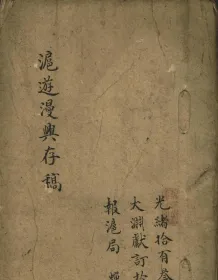 滬遊漫興存稿
光緒拾有叁
大淵獻訂於
报滬局